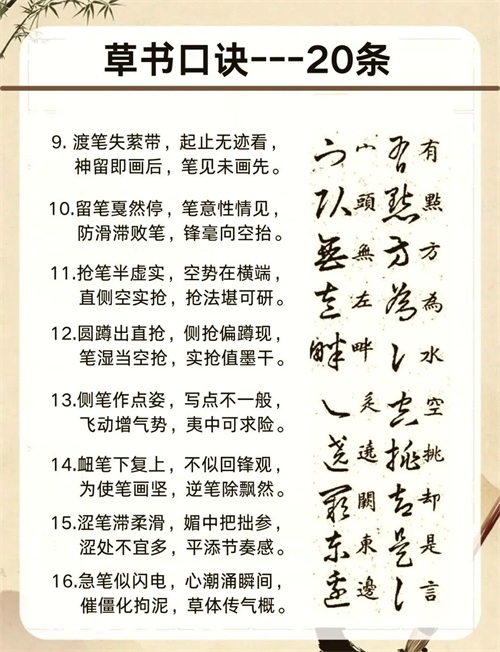 草书口诀---20条
9. 渡笔失萦带，起止无迹看，
神留即画后，笔见未画先。
10.留笔戛然停，笔意性情见，
防滑滞败笔，锋毫向空抬。
11.抢笔半虚实，空势在横端，
直侧空实抢，抢法堪可研。
12.圆蹲出直抢，侧抢偏蹲现，
笔湿当空抢，实抢值墨干。
13.侧笔作点姿，写点不一般，
飞动增气势，夷中可求险。
14.衄笔下复上，不似回锋观，
为使笔画坚，逆笔除飘然。
15.涩笔滞柔滑，媚中把拙参，
涩处不宜多，平添节奏感。
16.急笔似闪电，心潮涌瞬间，
催僵化拘泥，草体传气概。
有點方為水空挑却是言
山頭無左畔辵遶闕東邊